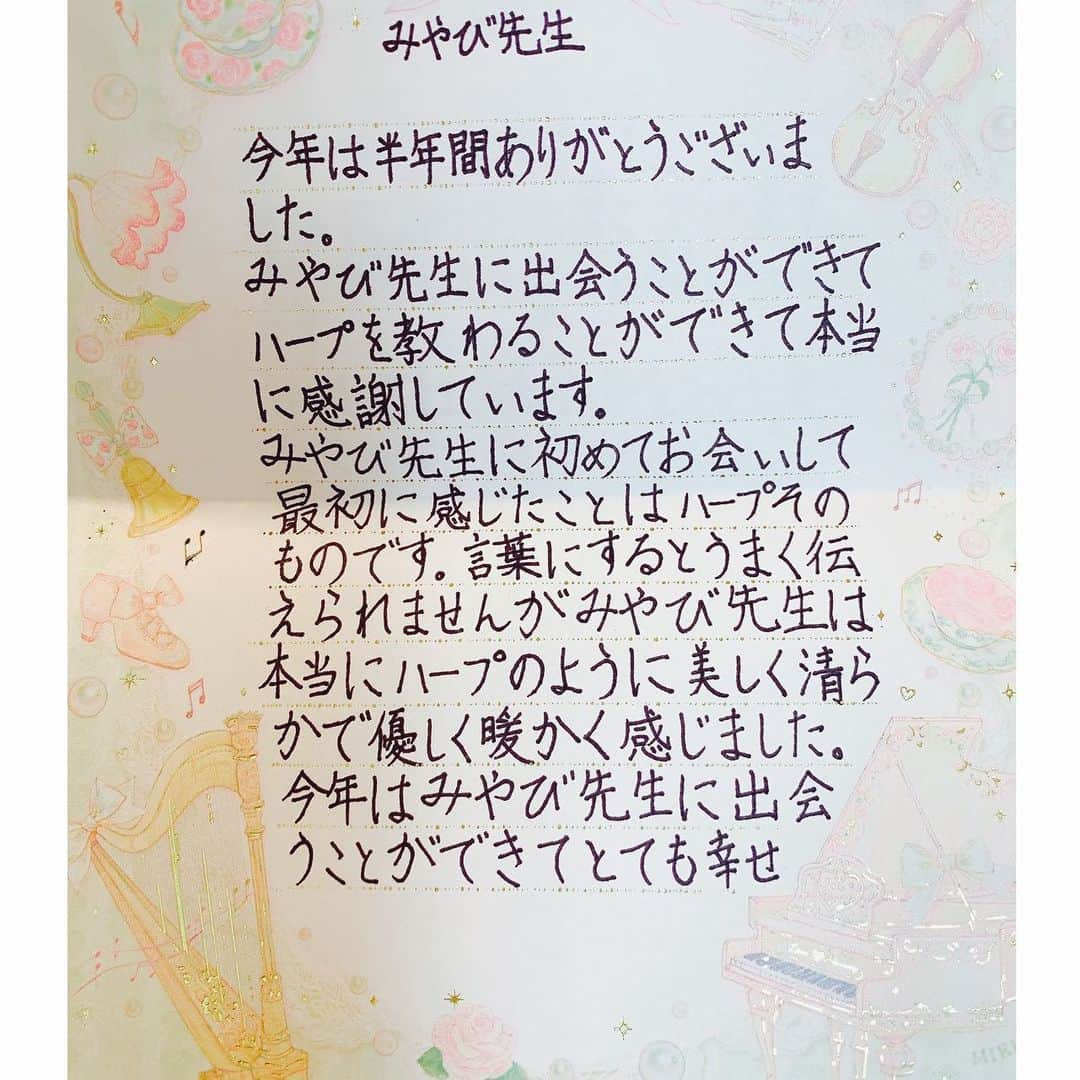 みやび先生
今年は半年間ありがとうございま
した。
みやび先生に出会うことができて
ハープを教わることができて本当
に感謝しています。
みやび先生に初めてお会いして
最初に感じたことはハープその
ものです。言葉にするとうまく伝
えられませんがみやび先生は
本当にハープのように美しく清ら
かで優しく暖かく感じました。
今年はみやび先生に出会
うことができてとても幸せ